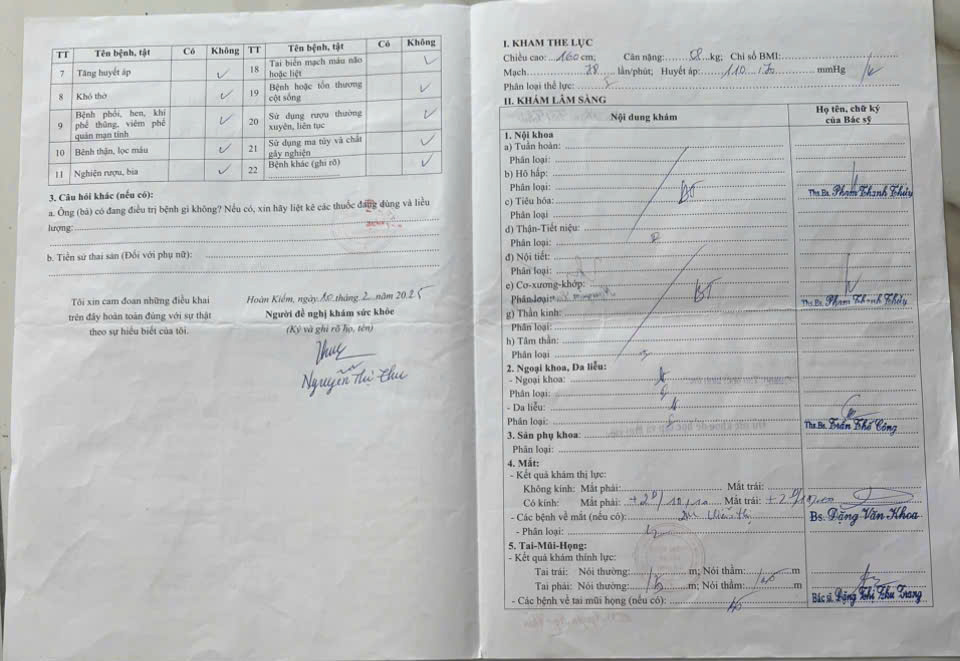 TT Tên bệnh, tật Có Không TT Tên bệnh, tật Có Không
7 Tăng huyết áp ✓ 18 Tai biến mạch máu não hoặc liệt ✓
8 Khó thở ✓ 19 Bệnh hoặc tổn thương cột sống ✓
9 Bệnh phổi, hen, khí phế thũng, viêm phế quản mạn tính ✓ 20 Sử dụng rượu thường xuyên, liên tục ✓
10 Bệnh thận, lọc máu ✓ 21 Sử dụng ma túy và chất gây nghiện ✓
11 Nghiện rượu, bia ✓ 22 Bệnh khác (ghi rõ) ✓
3. Câu hỏi khác (nếu có):
a. Ông (bà) có đang điều trị bệnh gì không? Nếu có, xin hãy liệt kê các thuốc đang dùng và liều
lượng:
b. Tiền sử thai sản (Đối với phụ nữ):
Tôi xin cam đoan những điều khai
trên đây hoàn toàn đúng với sự thật
theo sự hiểu biết của tôi.
Hoàn Kiếm, ngày 10 tháng 2 năm 2025
Người đề nghị khám sức khỏe
(Ký và ghi rõ họ, tên)
Thu
Nguyễn Thị Thu
I. KHÁM THỂ LỰC
Chiều cao: 160 cm; Cân nặng: 58 kg; Chỉ số BMI:
Mạch 78 lần/phút; Huyết áp: 110 mmHg
Phân loại thể lực:
II. KHÁM LÂM SÀNG
Nội dung khám
Họ tên, chữ ký của Bác sỹ
1. Nội khoa
a) Tuần hoàn:
Phân loại:
b) Hô hấp:
Phân loại:
Ths.Bs. Phạm Thanh Thủy
c) Tiêu hóa: BT
Phân loại
d) Thận-Tiết niệu:
Phân loại:
đ) Nội tiết:
Phân loại:
e) Cơ-xương-khớp: BT
Phân loại:
Ths.Bs. Phạm Thanh Thủy
g) Thần kinh:
Phân loại:
h) Tâm thần:
Phân loại
2. Ngoại khoa, Da liễu:
- Ngoại khoa:
Phân loại:
- Da liễu:
Phân loại:
Ths.Bs. Trần Thế Công
3. Sản phụ khoa:
Phân loại:
4. Mắt:
- Kết quả khám thị lực:
Không kính: Mắt phải: Mắt trái:
Có kính: Mắt phải: Mắt trái:
- Các bệnh về mắt (nếu có):
Bs. Đặng Văn Khoa
- Phân loại:
5. Tai-Mũi-Họng:
- Kết quả khám thính lực:
Tai trái: Nói thường: m; Nói thầm: m
Tai phải: Nói thường: m; Nói thầm: m
- Các bệnh về tai mũi họng (nếu có):
Bác sĩ. Đặng Thị Thu Trang